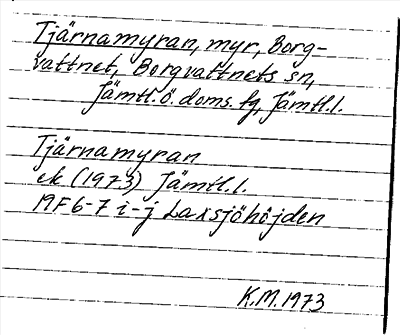 Tjärnamyran, myr, Borg-
vattnet, Borgvattnets sn,
Jämtl.ö. doms. fg, Jämtl.l.
Tjärnamyran
ek (1973) Jämtl.l.
19F 6-7 i-j Laxsjöhöjden
K.M. 1973